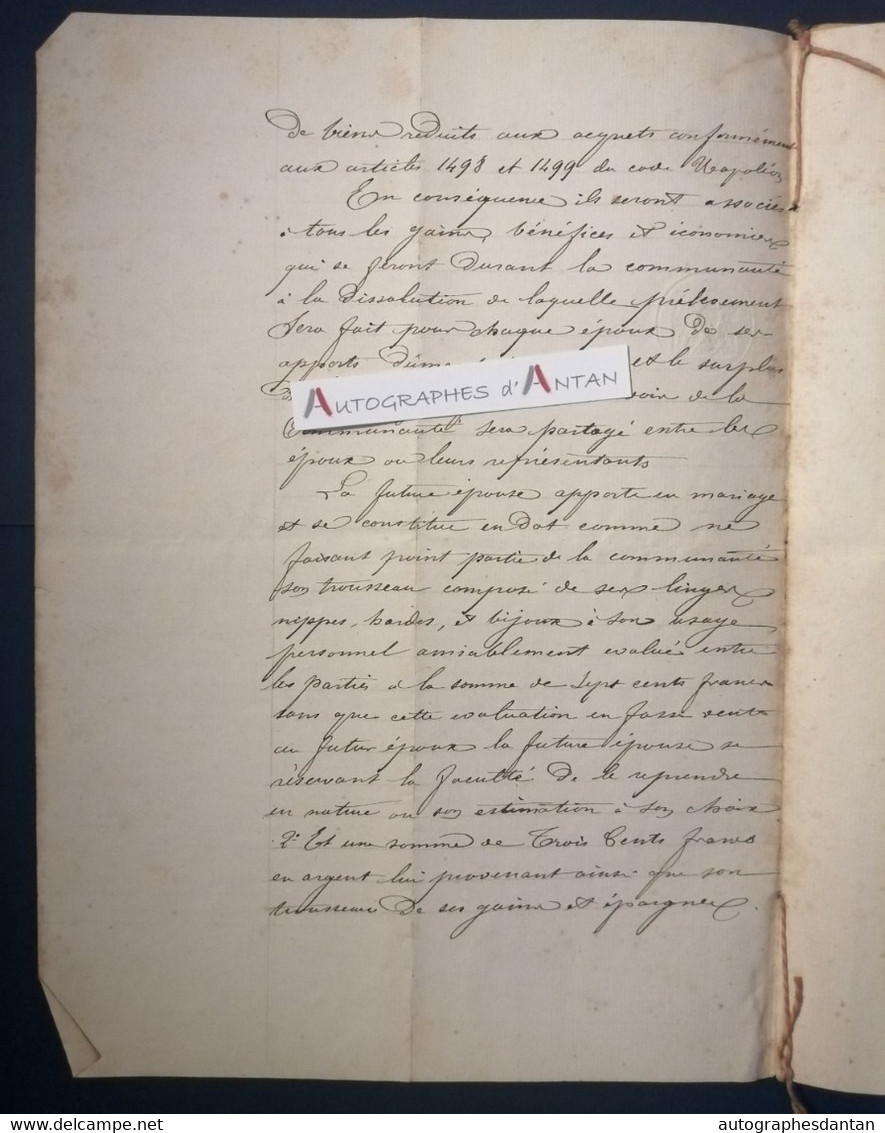 de biens reduits aux acquets conformément
aux articles 1498 et 1499 du code Napoléon
En conséquence ils seront associés
à tous les gains, bénéfices et économies
qui se feront durant la communauté
à la dissolution de laquelle prélèvement
sera fait pour chaque époux de ses
apports et le surplus
de la
communauté sera partagé entre les
époux ou leurs représentants
La future épouse apporte en mariage
et se constitue en dot comme ne
faisant point partie de la communauté
son trousseau composé de ses linges
nippes, hardes, et bijoux à son usage
personnel amiablement evalué entre
les parties à la somme de Sept cents francs
sans que cette evaluation en fasse vente
au futur époux la future épouse se
réservant la faculté de le reprendre
en nature ou son estimation à son choix
2° Et une somme de Trois Cents francs
en argent lui provenant ainsi que son
trousseau de ses gains et épargnes.
AUTOGRAPHES d'ANTAN
www.delcampe.net
autographesdantan